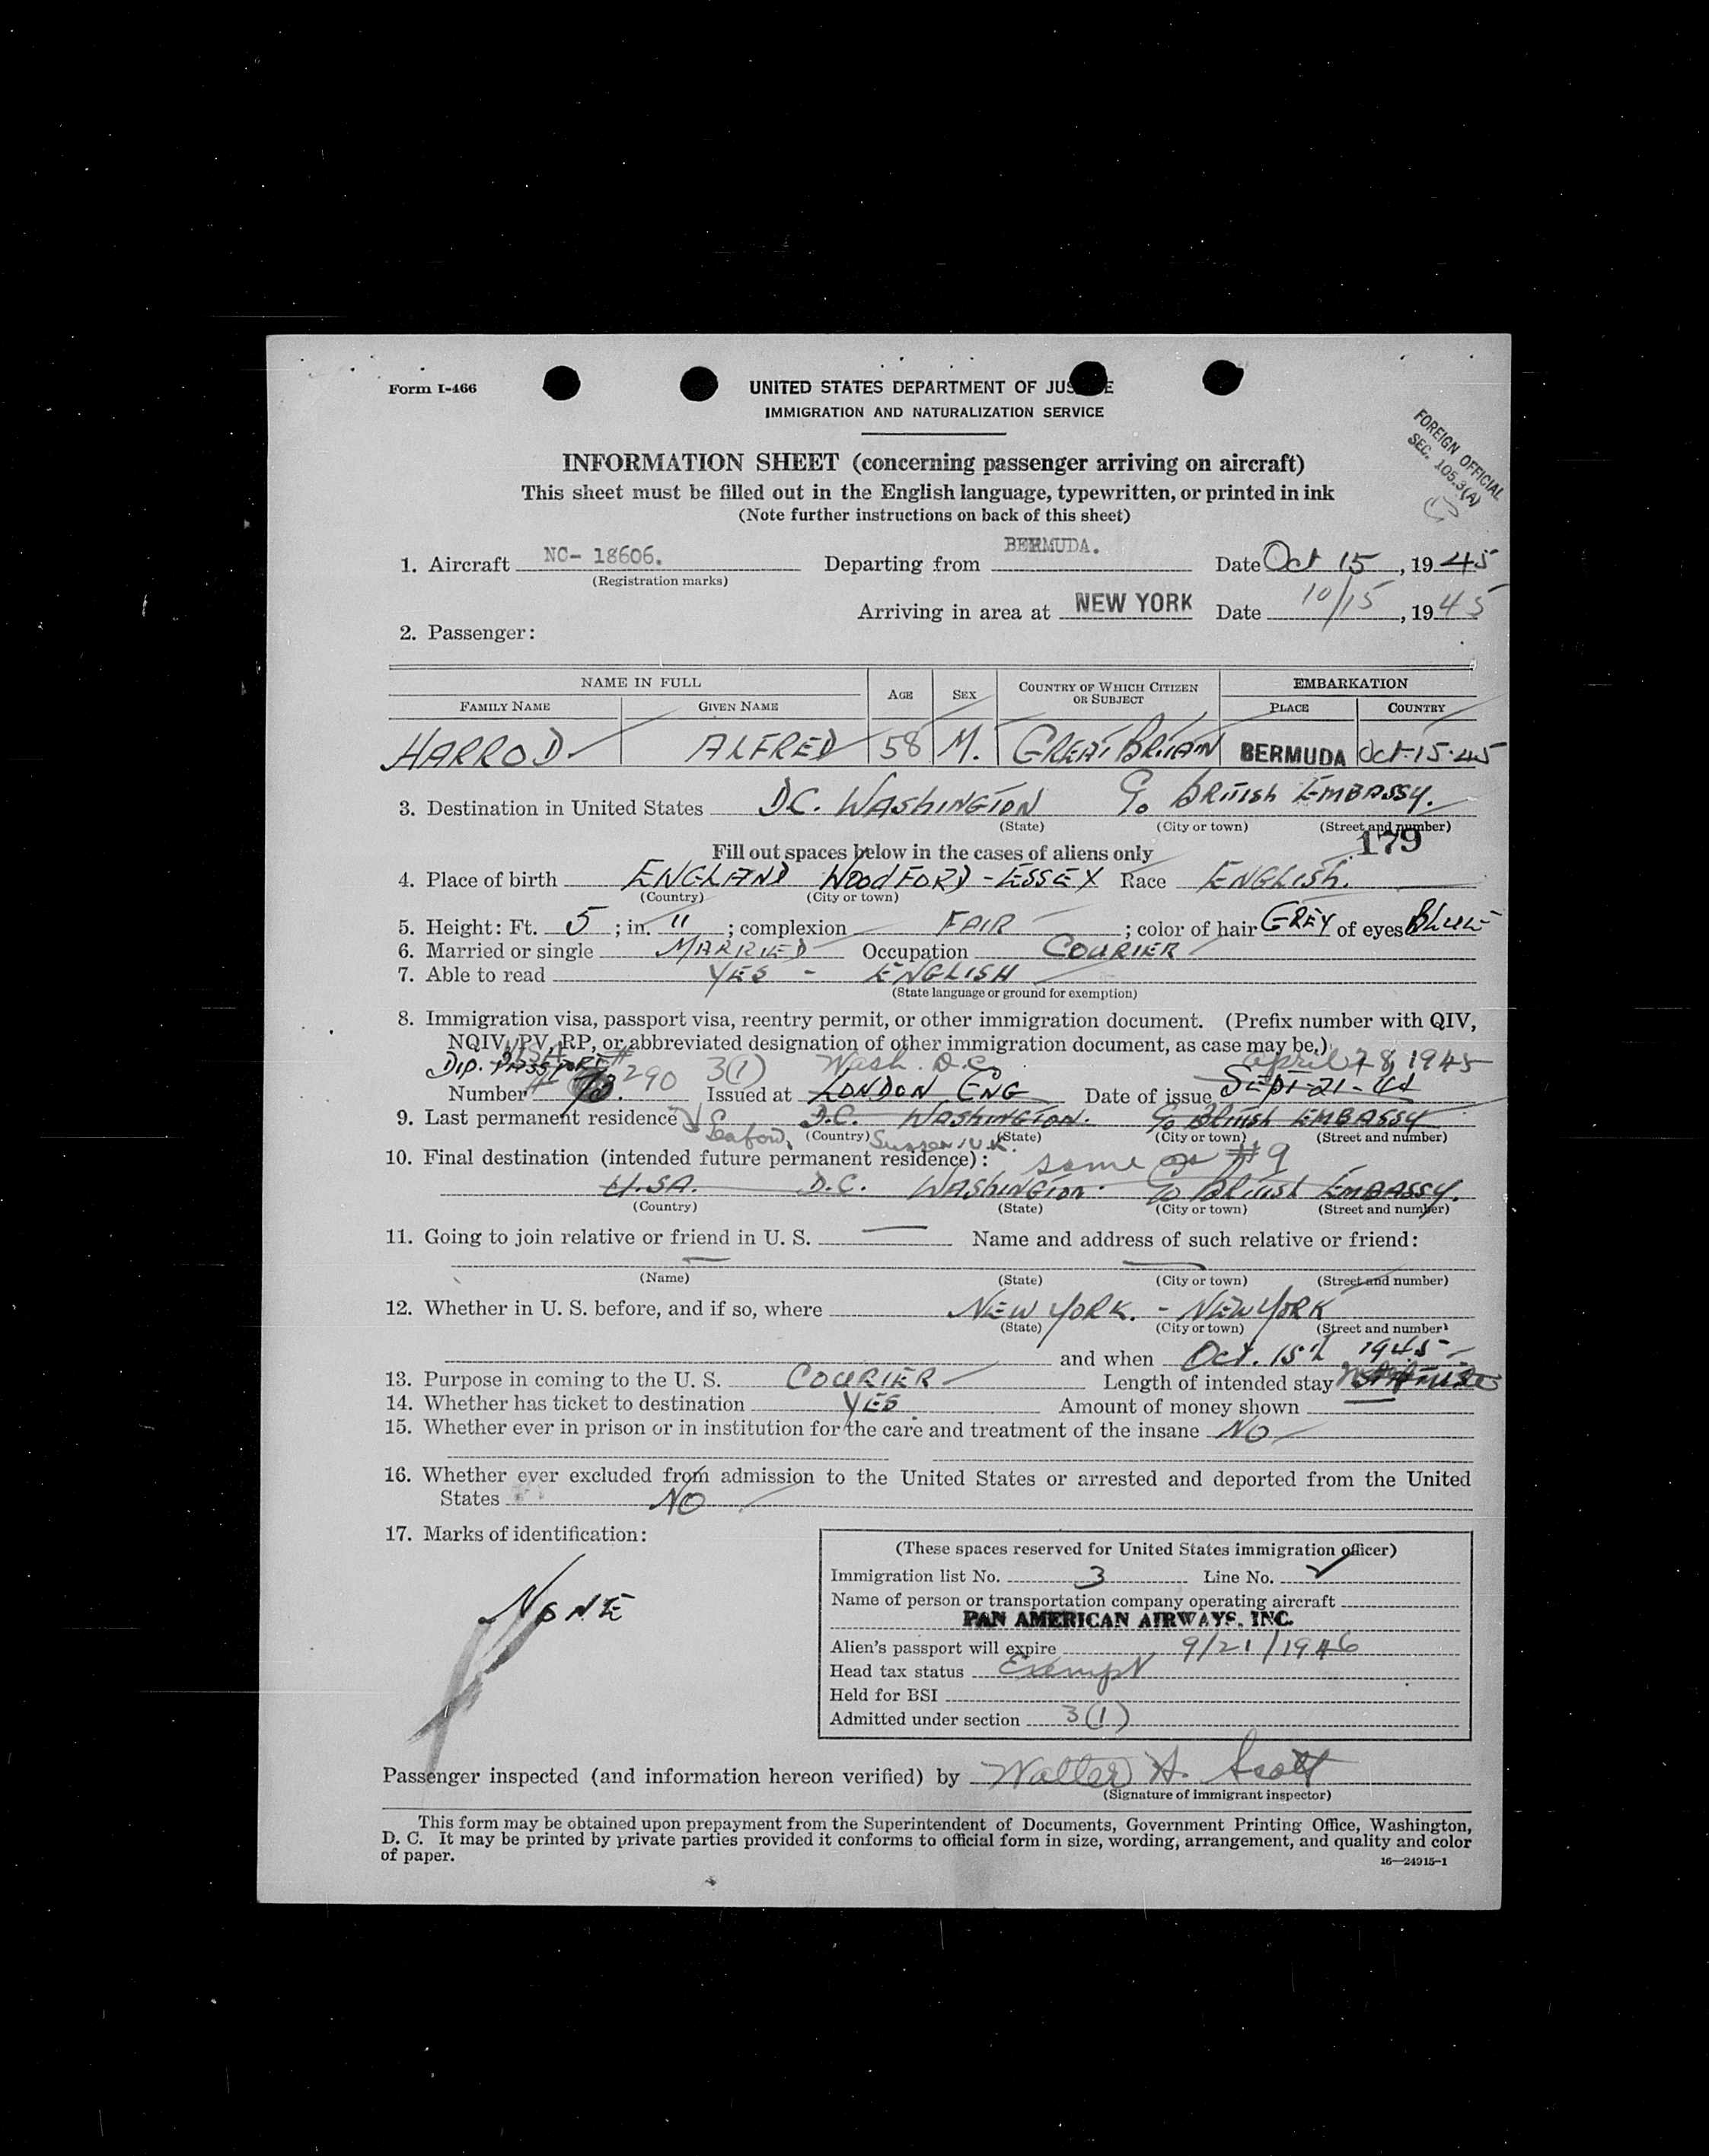 Form I-466
UNITED STATES DEPARTMENT OF JUS E
IMMIGRATION AND NATURALIZATION SERVICE
FOREIGN OFFICIAL
SEC. 105.3(A)
INFORMATION SHEET (concerning passenger arriving on aircraft)
This sheet must be filled out in the English language, typewritten, or printed in ink
(Note further instructions on back of this sheet)
1. Aircraft NC- 18606. Departing from BERMUDA. Date Oct 15, 1945
(Registration marks)
Arriving in area at NEW YORK Date 10/15, 1945
2. Passenger:
NAME IN FULL AGE SEX COUNTRY OF WHICH CITIZEN OR SUBJECT EMBARKATION
FAMILY NAME GIVEN NAME PLACE COUNTRY
HARROD ALFRED 58 M. GREAT BRITAIN BERMUDA Oct-15-45
3. Destination in United States D.C. WASHINGTON c/o BRITISH EMBASSY.
(State) (City or town) (Street and number)
179
Fill out spaces below in the cases of aliens only
4. Place of birth ENGLAND WOODFORD - ESSEX Race ENGLISH.
(Country) (City or town)
5. Height: Ft. 5; in. 11; complexion FAIR; color of hair GREY of eyes BLUE
6. Married or single MARRIED Occupation COURIER
7. Able to read YES - ENGLISH
(State language or ground for exemption)
8. Immigration visa, passport visa, reentry permit, or other immigration document. (Prefix number with QIV,
NQIV, PV, RP, or abbreviated designation of other immigration document, as case may be.)
DIP. PASSPORT # 290 3(1) Wash. D.C. April 28, 1945
Number # 73. Issued at LONDON ENG Date of issue SEPT-21-44
9. Last permanent residence D.C. WASHINGTON. c/o BRITISH EMBASSY
Seaford, Sussex, U.K.
(Country) (State) (City or town) (Street and number)
10. Final destination (intended future permanent residence): same as #9
U.SA. D.C. WASHINGTON. c/o BRITISH EMBASSY.
(Country) (State) (City or town) (Street and number)
11. Going to join relative or friend in U. S. — Name and address of such relative or friend:
(Name) (State) (City or town) (Street and number)
12. Whether in U. S. before, and if so, where NEW YORK. - NEW YORK
(State) (City or town) (Street and number)
and when Oct. 15th 1945-
13. Purpose in coming to the U. S. COURIER Length of intended stay
14. Whether has ticket to destination YES. Amount of money shown —
15. Whether ever in prison or in institution for the care and treatment of the insane NO
16. Whether ever excluded from admission to the United States or arrested and deported from the United
States NO
17. Marks of identification:
NONE
(These spaces reserved for United States immigration officer)
Immigration list No. 3 Line No.
Name of person or transportation company operating aircraft
PAN AMERICAN AIRWAYS, INC.
Alien's passport will expire 9/21/1946
Head tax status Exempt
Held for BSI
Admitted under section 3(1)
Passenger inspected (and information hereon verified) by Walter H. Scott
(Signature of immigrant inspector)
This form may be obtained upon prepayment from the Superintendent of Documents, Government Printing Office, Washington,
D. C. It may be printed by private parties provided it conforms to official form in size, wording, arrangement, and quality and color
of paper.
16—24915-1